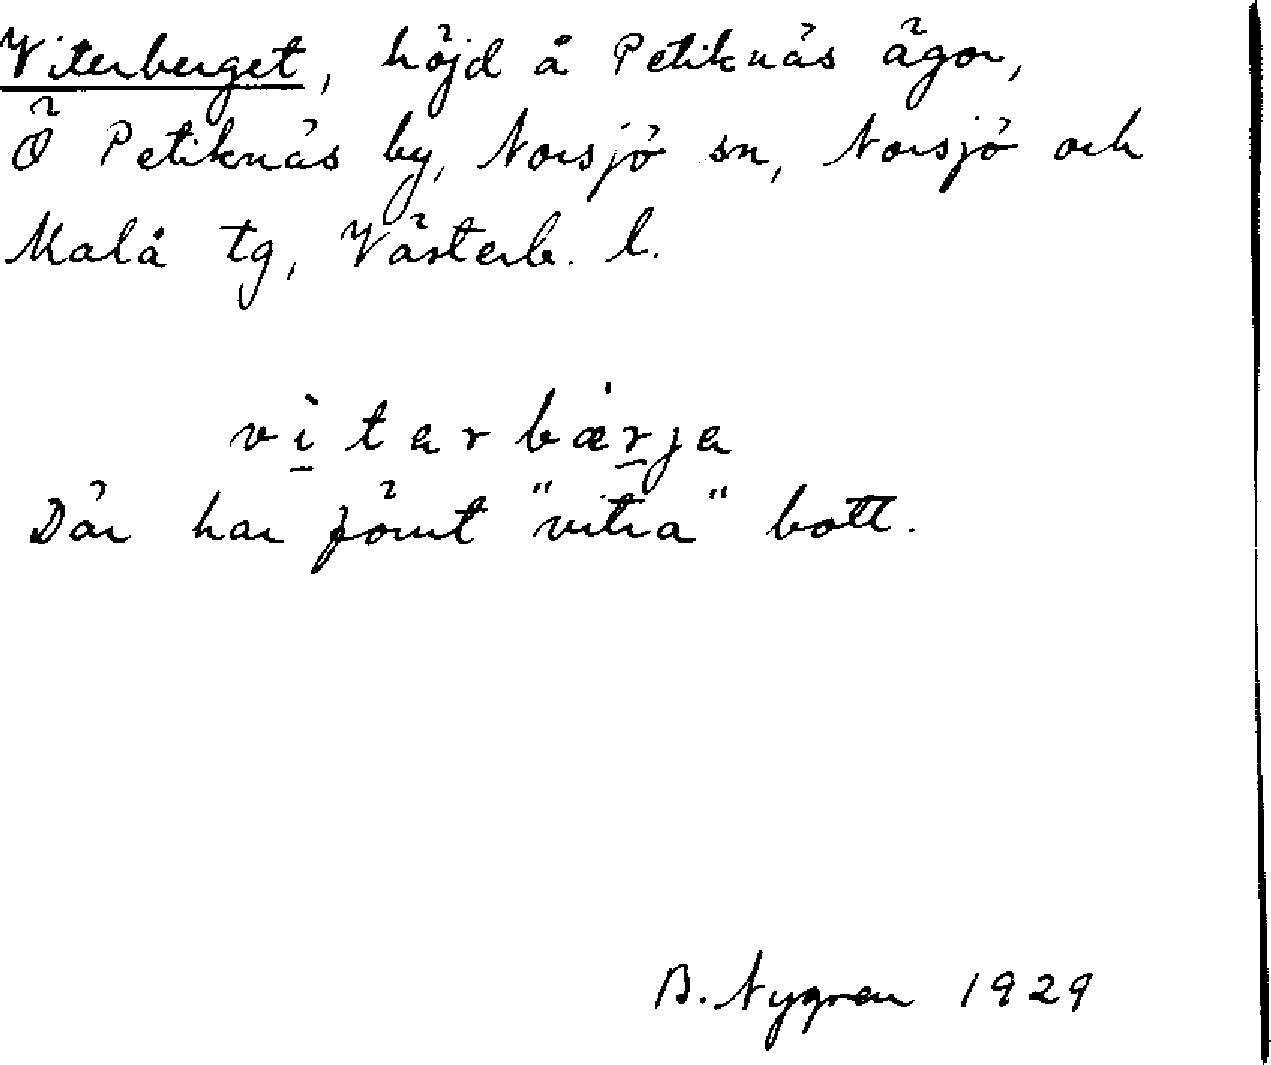 Viterberget, höjd å Petiknäs ägor,
Ö Petiknäs by, Norsjö sn, Norsjö och
Malå tg, Västerb. l.
vì̱tarbæ̇r̲ja
Där har förut "vitra" bott.
B. Nygren 1929